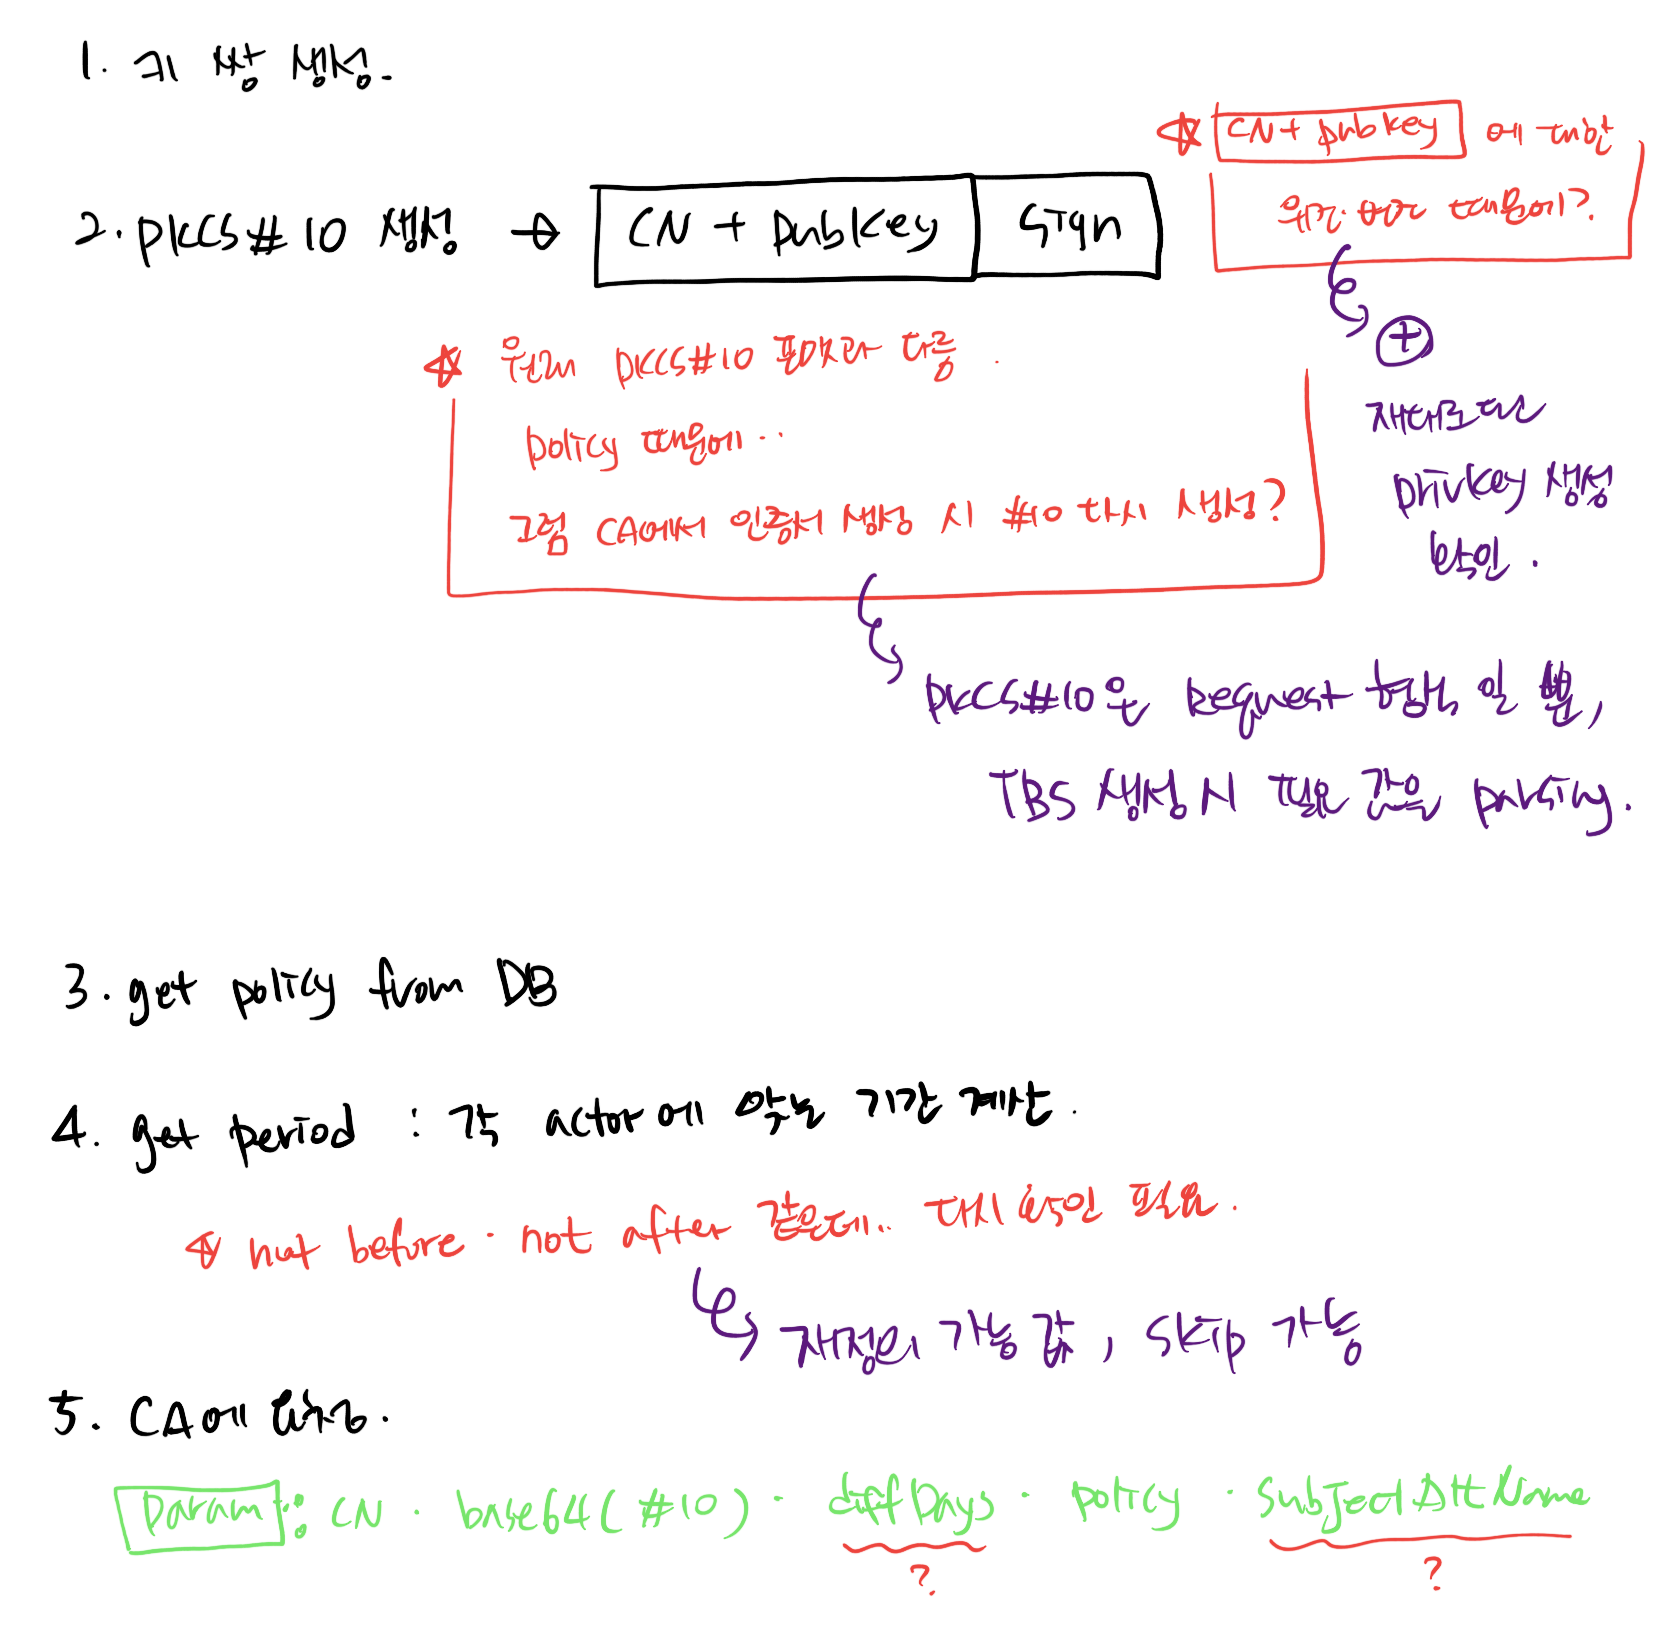 1. 키 쌍 생성.
☆ CN + pubkey 에 대한
위조 방지 때문에?
2. PKCS#10 생성 → CN + pubkey Sign
⊕
제대로된
privkey 생성
확인.
☆ 원래 PKCS#10 포맷과 다름.
policy 때문에..
그럼 CA에서 인증서 생성 시 #10 다시 생성?
PKCS#10은 request 형식 일 뿐,
TBS 생성 시 필요 값을 parsing.
3. get policy from DB
4. get period : 각 actor에 맞는 기간 계산.
☆ not before · not after 같은데.. 다시 확인 필요.
재정의 가능 값, skip 가능
5. CA에 요청.
Param : CN · base64(#10) · diffDays · policy · SubjectAltName
? ?